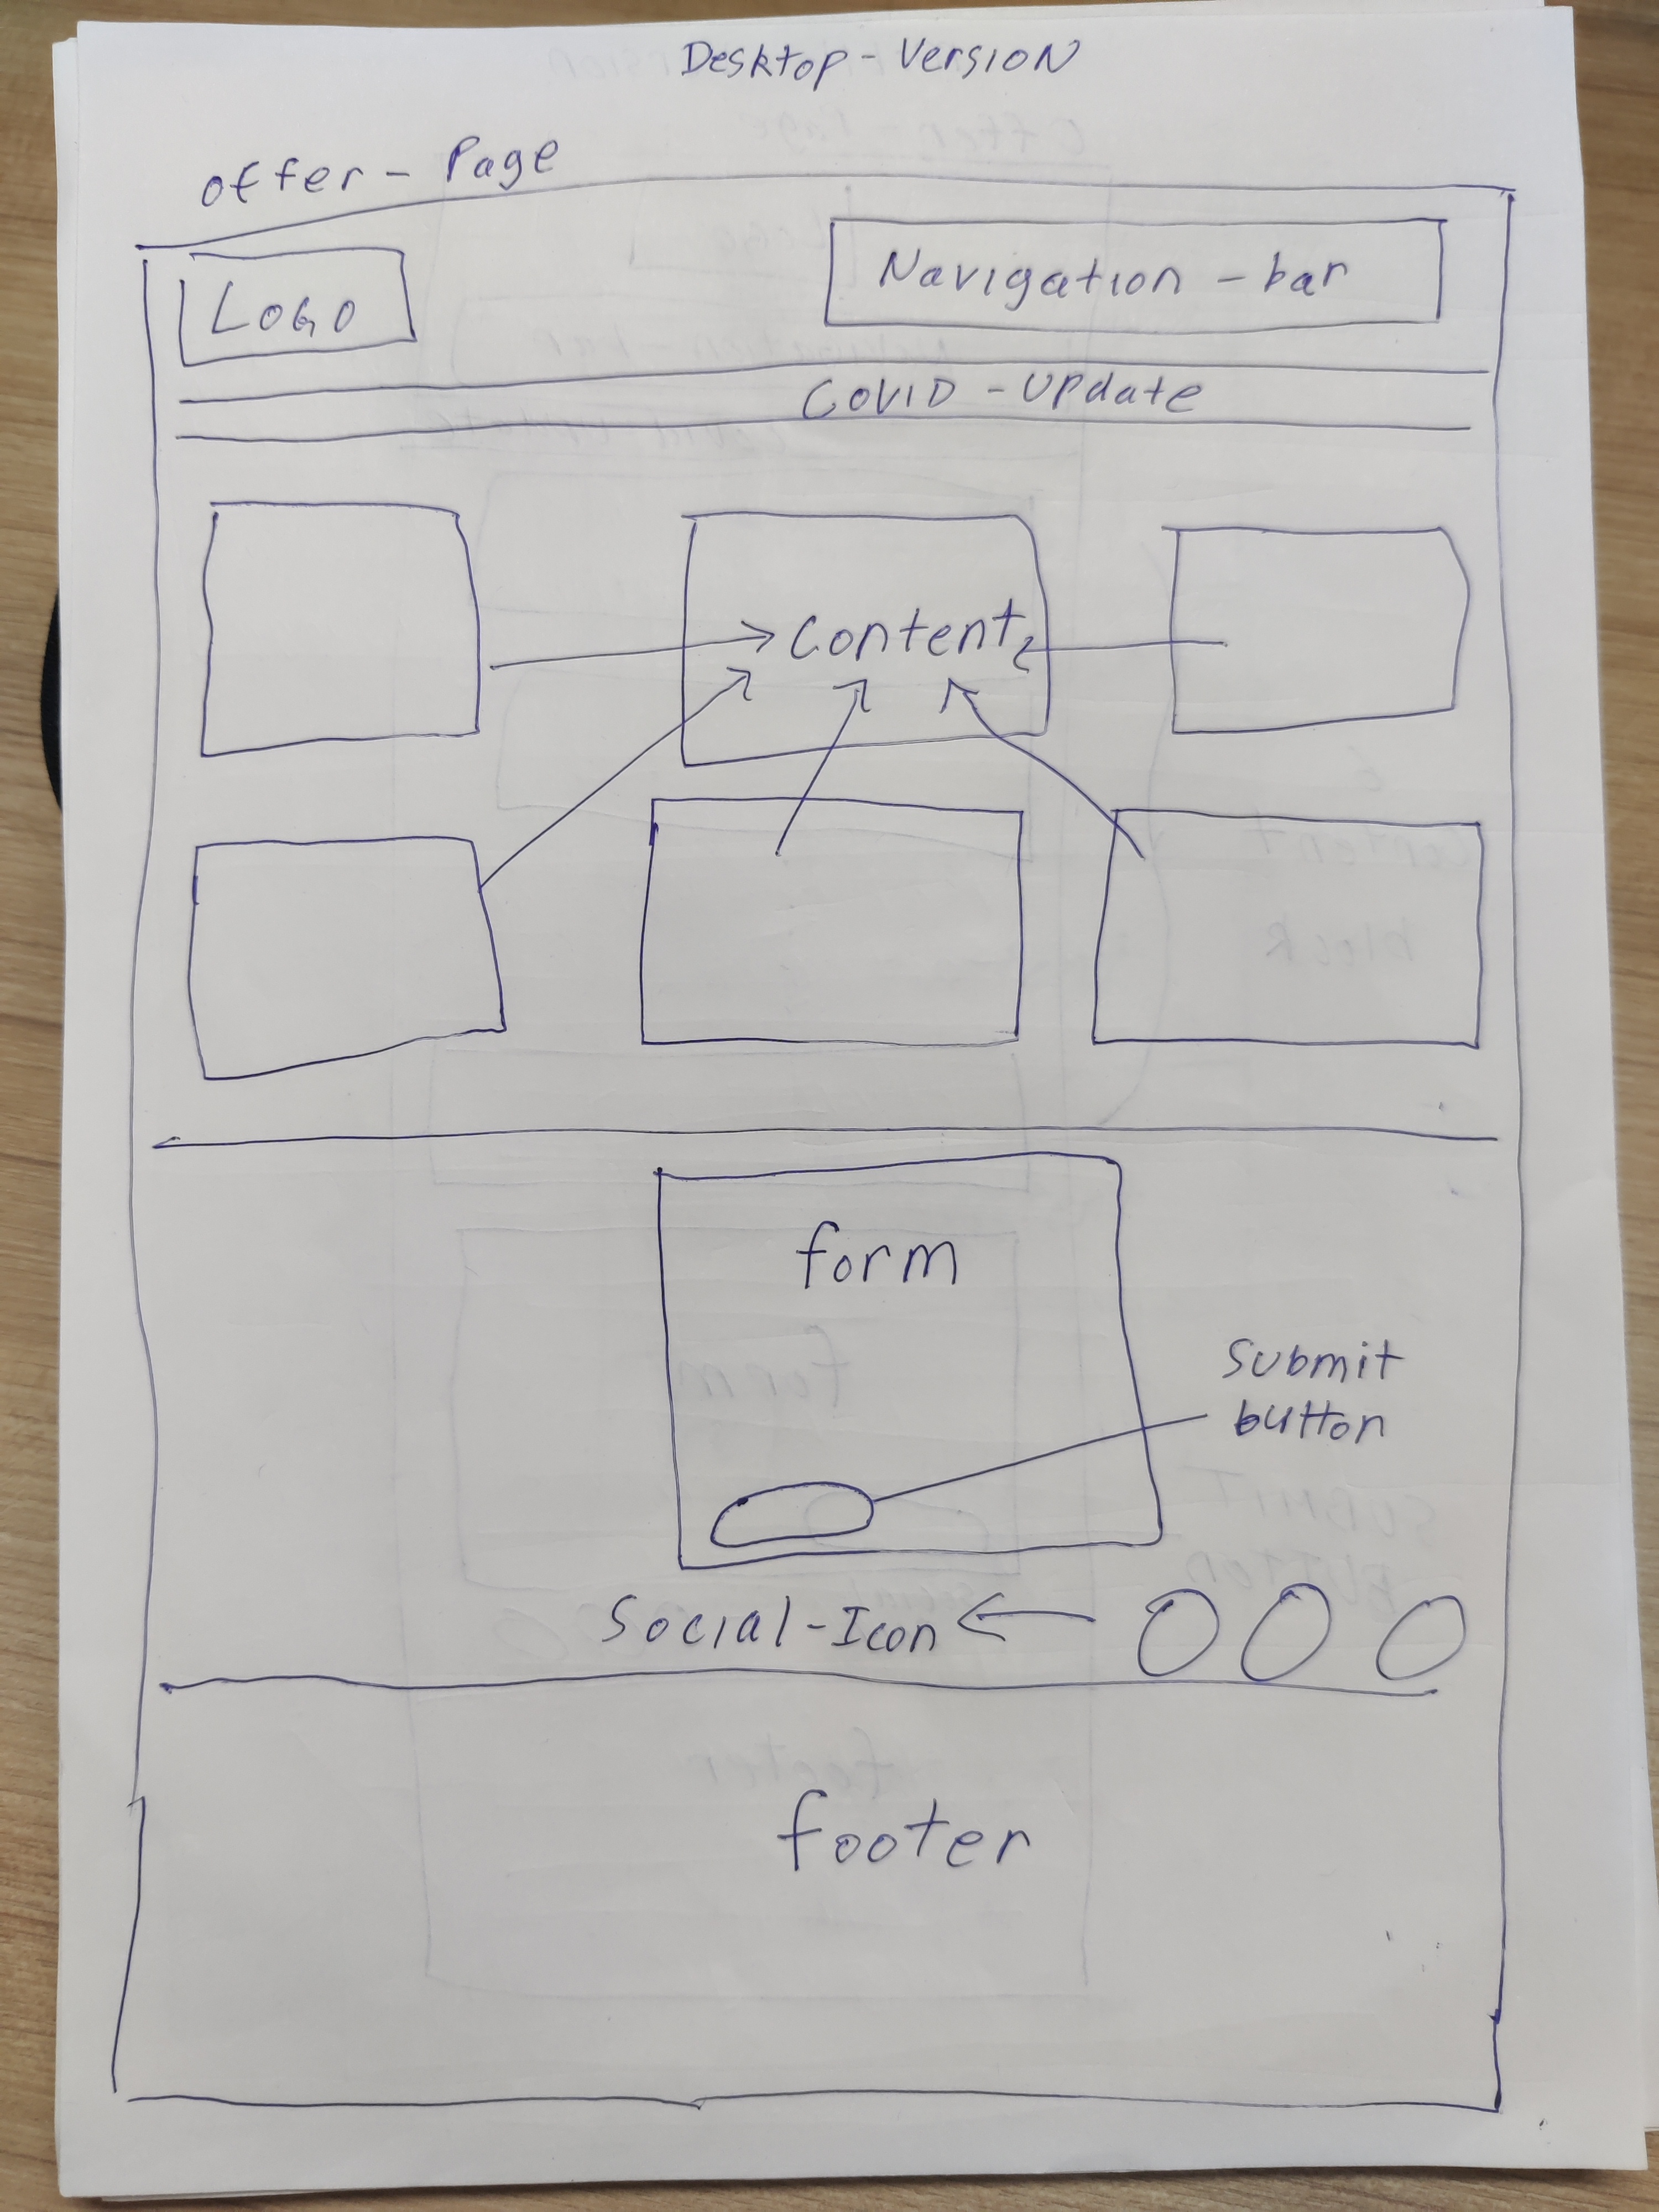 Desktop - Version
offer - Page
Logo
Navigation - bar
COVID - Update
Content
form
Submit
button
Social-Icon
footer